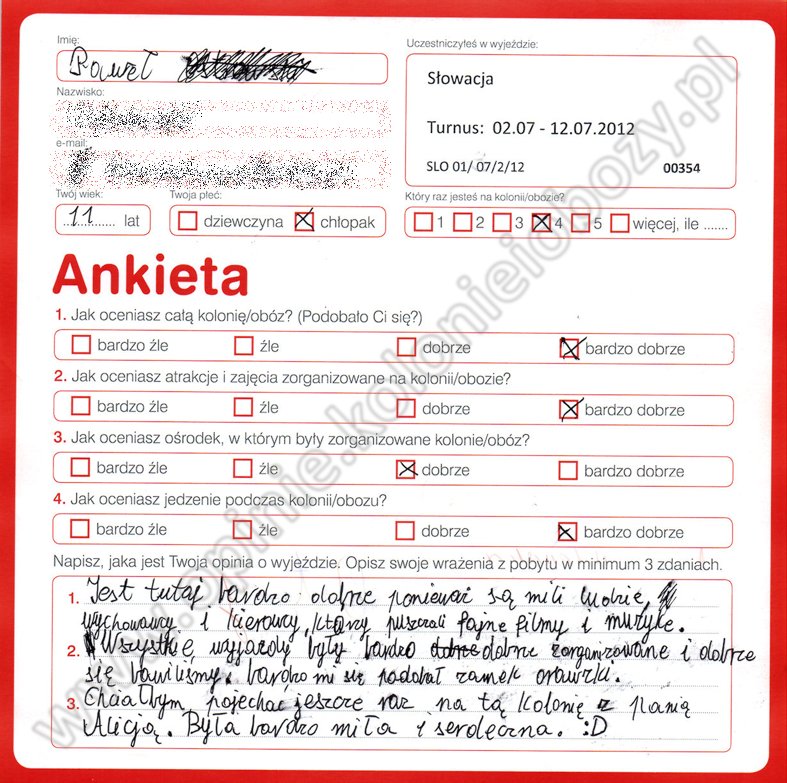 Imię:
Paweł
Uczestniczyłeś w wyjeździe:
Słowacja
Turnus: 02.07 - 12.07.2012
SLO 01/ 07/2/12 00354
Nazwisko:
e-mail:
Twój wiek:
11 lat
Twoja płeć:
dziewczyna chłopak
Który raz jesteś na kolonii/obozie?
1 2 3 4 5 więcej, ile .......
Ankieta
1. Jak oceniasz całą kolonię/obóz? (Podobało Ci się?)
bardzo źle źle dobrze bardzo dobrze
2. Jak oceniasz atrakcje i zajęcia zorganizowane na kolonii/obozie?
bardzo źle źle dobrze bardzo dobrze
3. Jak oceniasz ośrodek, w którym były zorganizowane kolonie/obóz?
bardzo źle źle dobrze bardzo dobrze
4. Jak oceniasz jedzenie podczas kolonii/obozu?
bardzo źle źle dobrze bardzo dobrze
Napisz, jaka jest Twoja opinia o wyjeździe. Opisz swoje wrażenia z pobytu w minimum 3 zdaniach.
1. Jest tutaj bardzo dobrze ponieważ są mili ludzie,
wychowawcy i kierowcy, którzy puszczali fajne filmy i muzykę.
2. Wszystkie wyjazdy były bardzo dobrze dobrze zorganizowane i dobrze
się bawiliśmy. bardzo mi się podobał zamek orawski.
3. Chciałbym pojechać jeszcze raz na tą kolonię z panią
Alicją. Była bardzo miła i serdeczna. :D
www.opinie.kolonieiobozy.pl